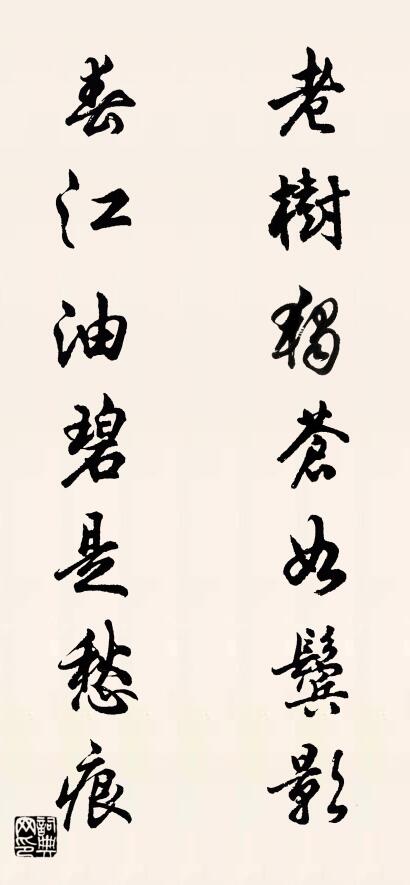 老樹獨蒼如鬢影
春江油碧是愁痕
詞典網印